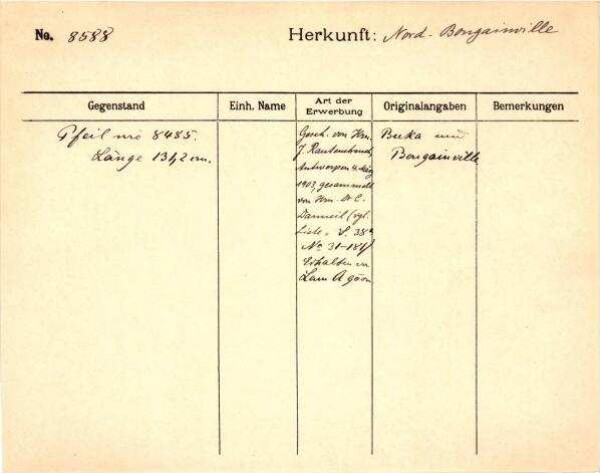 No. 8588
Herkunft: Nord-Bougainville
Gegenstand
Einh. Name
Art der Erwerbung
Originalangaben
Bemerkungen
Pfeil wie 8485.
Länge 134,2 cm.
Gesch. von Hrn.
J. Rautenstrauch,
Antwerpen 4. März
1903, gesammelt
von Hrn. Dr C.
(vgl.
Liste S. 38
No 31-184)
Erhalten
Buka und
Bougainville